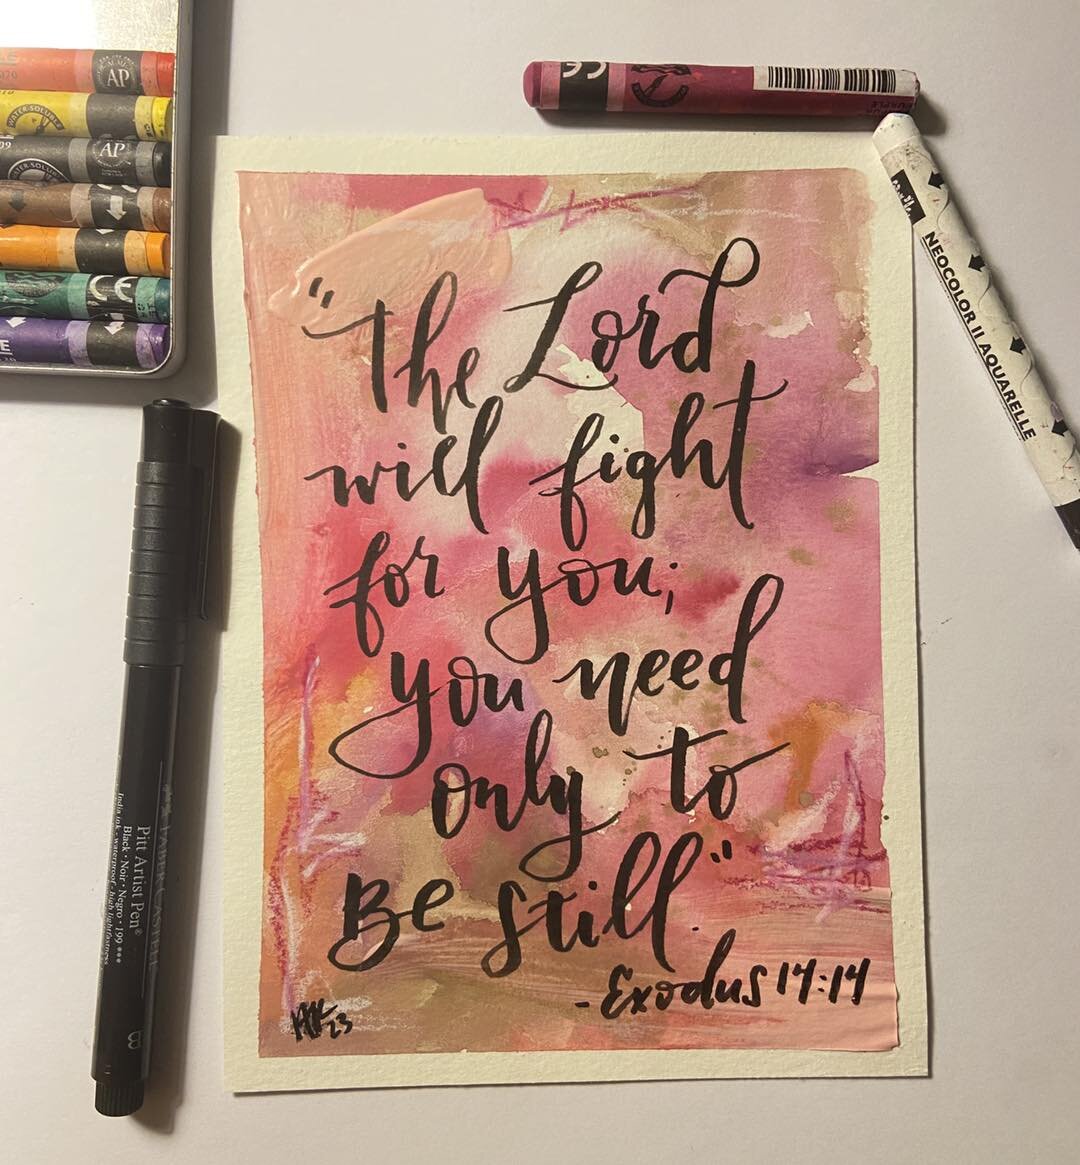 "The Lord
will fight
for you;
you need
only to
Be Still."
-Exodus 14:14
23
AP
WATER-SOLUBLE
AP
CE
CE
CE
NEOCOLOR II AQUARELLE
FABER CASTELL
Pitt Artist Pen®
Black • Noir • Negro • 199 ***
India ink - waterproof - high lightfastness
B